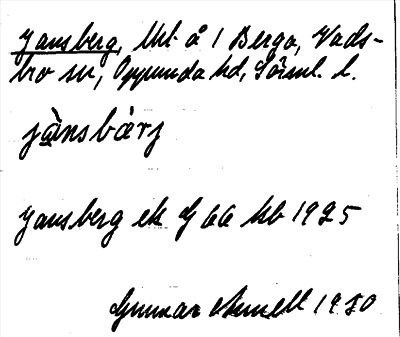 Jansberg, lht å 1 Berga, Vads-
bro sn, Oppunda hd, Söml. l.
jànsbàrj
Jansberg ek G 66 kb 1925
Gunnar 1930